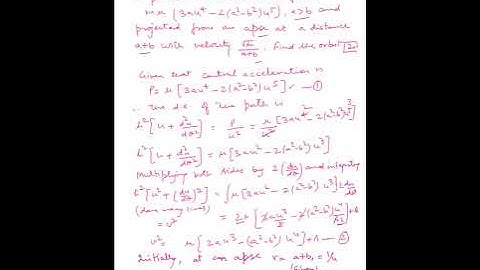 mu [3au⁴ - 2(a²-b²)u⁵], a>b and
projected from an apse at a distance
a+b with velocity √μ/(a+b). Find the orbit
Given that central acceleration is
P = μ[3au⁴ - 2(a²-b²)u⁵] — ①
∴ The d.e of the path is
h²[u + d²u/dθ²] = P/u² = μ/u² [3au⁴ - 2(a²-b²)u⁵]
h²[u + d²u/dθ²] = μ[3au² - 2(a²-b²)u³]
Multiplying both sides by 2(du/dθ) and integrating
h²[u² + (du/dθ)²] = ∫μ[3au² - 2(a²-b²)u³] 2du/dθ
(done many times) = 2μ[3au³/3 - 2(a²-b²)u⁴/4] + A
= v²
v² = μ[2au³ - (a²-b²)u⁴] + A — ②
Initially, at an apse r = a+b, = 1/u
(Given)